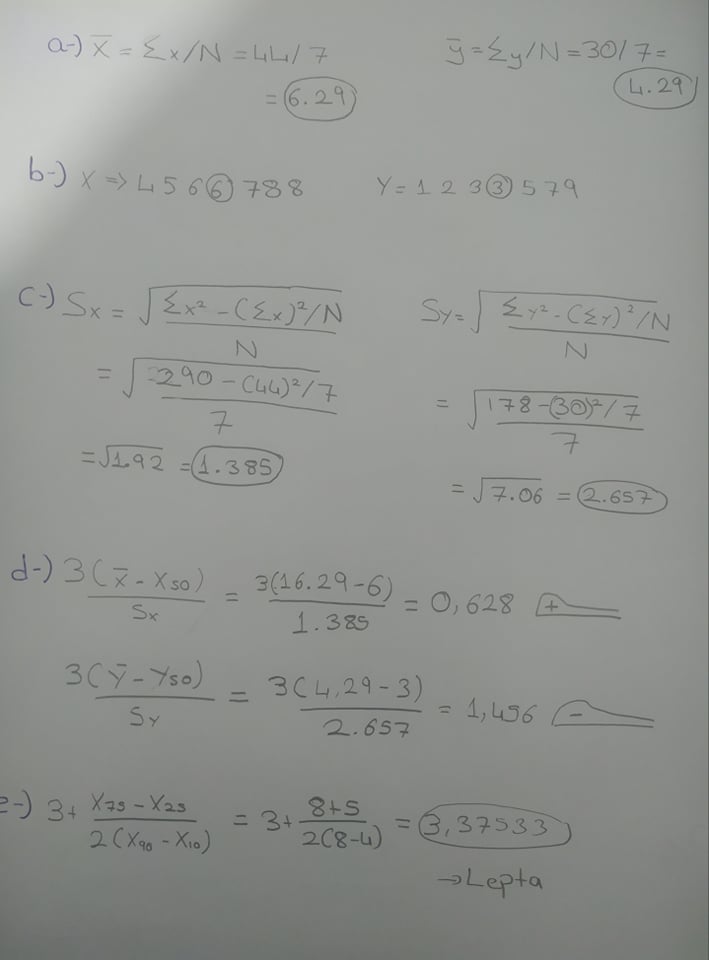 a-) x̄ = Σx/N = 44/7
= 6.29
ȳ = Σy/N = 30/7 =
4.29
b-) X => 4 5 6 6 7 8 8
Y = 1 2 3 3 5 7 9
c-) Sx = √(Σx² - (Σx)²/N / N)
= √(290 - (44)²/7 / 7)
= √1.92 = 1.385
Sy = √(Σy² - (Σy)²/N / N)
= √(178 - (30)²/7 / 7)
= √7.06 = 2.657
d-) 3(x̄ - X50) / Sx = 3(16.29 - 6) / 1.385 = 0,628 +
3(Ȳ - Y50) / Sy = 3(4,29 - 3) / 2.657 = 1,456 -
e-) 3 + X75 - X25 / 2(X90 - X10) = 3 + 8+5 / 2(8-4) = 3,37533
→ Lepta